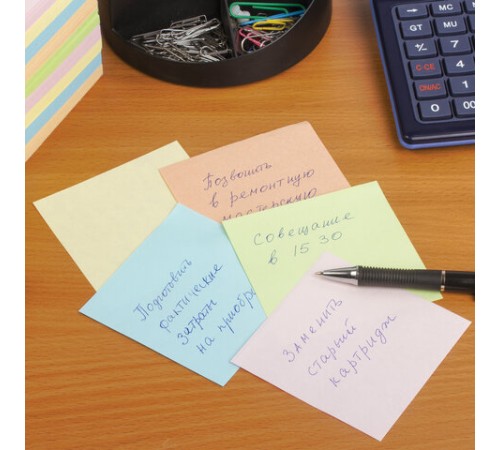 Позвонить
в ремонтную
мастерскую
Совещание
в 15 30
Подготовить
фактические
затраты
на приобре
Заменить
старый
картридж
GT MU
+/- 7
C·CE 4
ON/AC 1
0 00